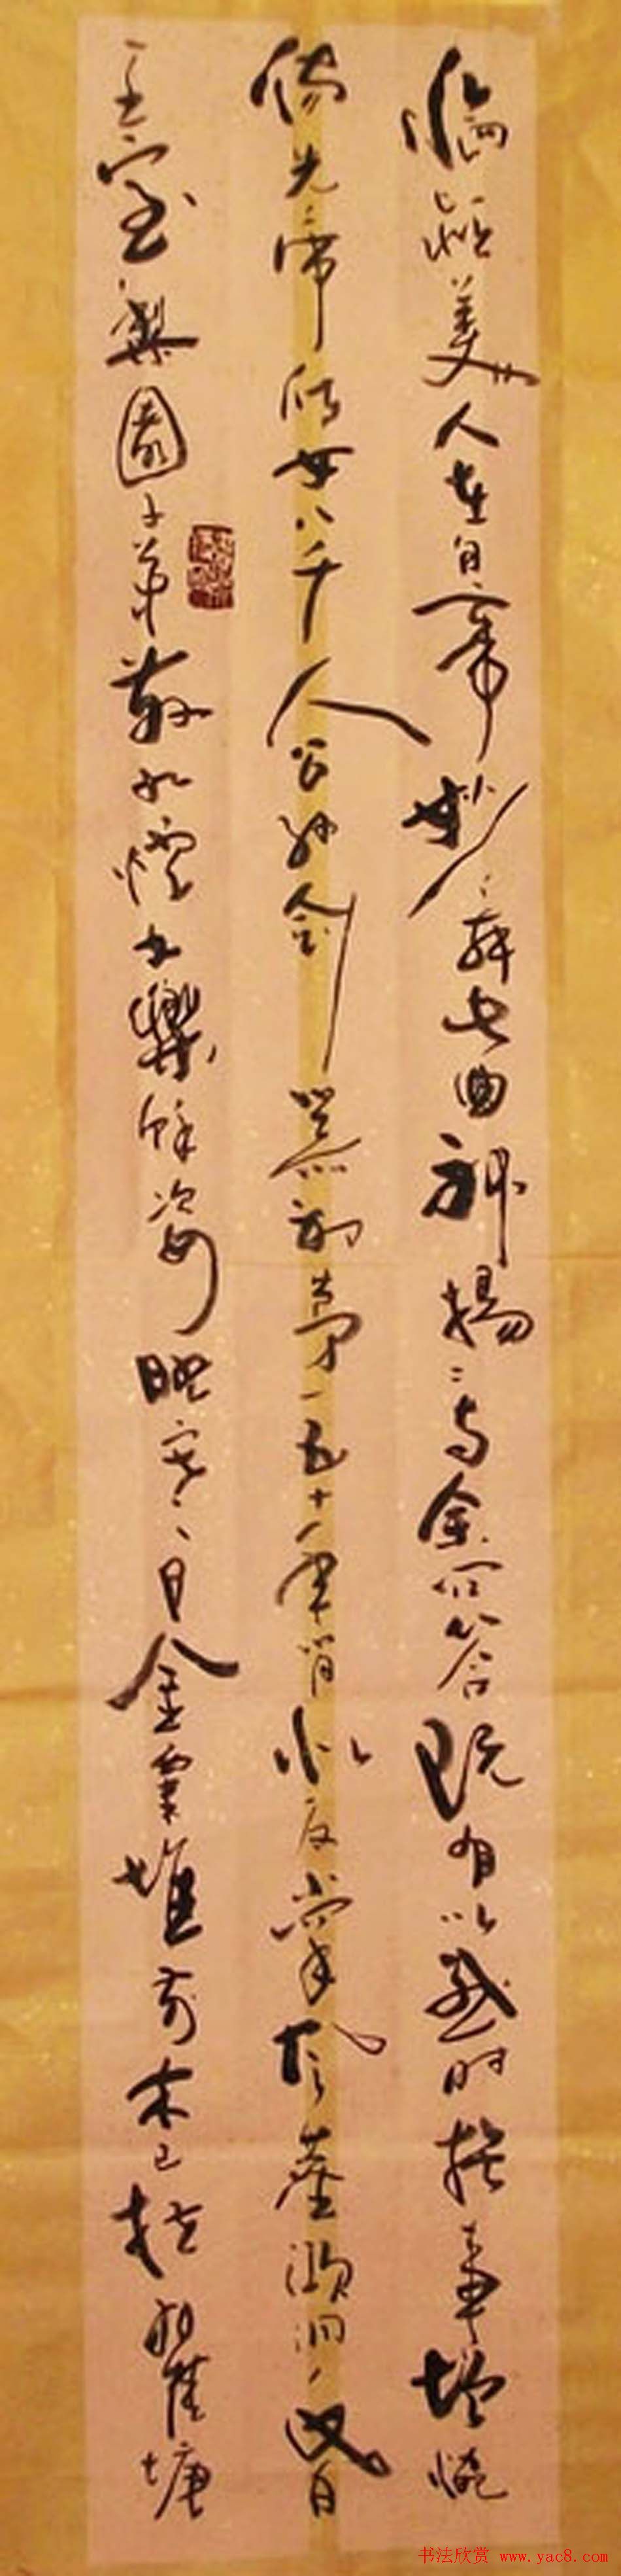 臨潁美人在白帝妙舞此曲神揚揚與余問答既有以感時撫事增惋
傷先帝侍女八千人公孫劍器初第一五十年間似反掌風塵澒洞昏
王室梨園子弟散如煙女樂餘姿映寒日金粟堆前木已拱瞿塘
书法欣赏 www.yac8.com